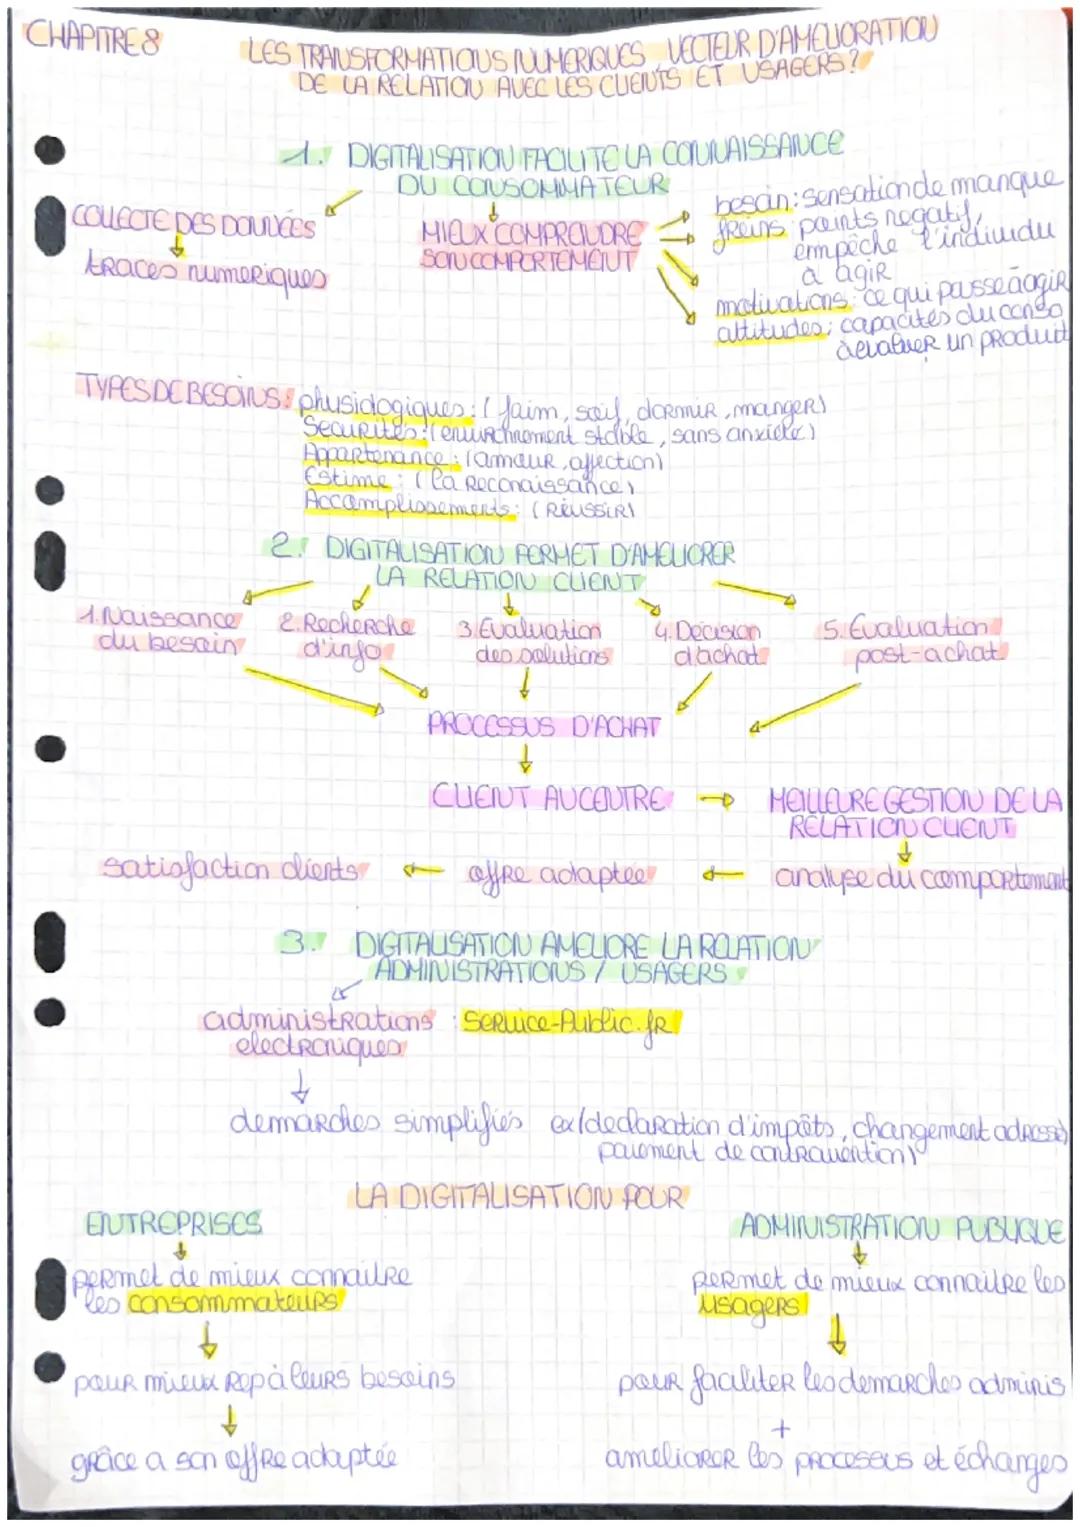 CHAPITRE 8
LES TRANSFORMATIONS NUMERIQUES VECTEUR D'AMELIORATION
DE LA RELATION AVEC LES CLIENTS ET USAGERS ?
1. DIGITALISATION FACILITE LA CONNAISSANCE
DU CONSOMMATEUR
COLLECTE DES DONNÉES
traces numeriques
MIEUX COMPRENDRE
SON COMPORTEMENT
besoin : sensation de manque
freins : points negatif,
empêche l'individu
a agir
motivations : ce qui pousse à agir
attitudes : capacités du conso
à evaluer un produit
TYPES DE BESOINS : physiologiques : ( faim, soif, dormir, manger)
Securités : (environnement stable, sans anxiété)
Appartenance : (amour, affection)
Estime : ( la reconaissance)
Accomplissements : ( REUSSIR)
2. DIGITALISATION PERMET D'AMELIORER
LA RELATION CLIENT
1. Naissance
du besoin
2. Recherche
d'info
3. Evaluation
des solutions
4. Decision
d'achat
5. Evaluation
post-achat
PROCESSUS D'ACHAT
CLIENT AU CENTRE
MEILLEURE GESTION DE LA
RELATION CLIENT
satisfaction clients
offre adaptée
analyse du comportement
3. DIGITALISATION AMELIORE LA RELATION
ADMINISTRATIONS / USAGERS
administrations : Service-Public.fr
electroniques
demarches simplifiés ex(declaration d'impôts, changement adresse)
paiement de contravention)
LA DIGITALISATION POUR
ENTREPRISES
permet de mieux connaitre
les consommateurs
pour mieux rep à leurs besoins
grâce a son offre adaptée
ADMINISTRATION PUBLIQUE
permet de mieux connaitre les
usagers
pour faciliter les demarches adminis
+
ameliorer les processus et échanges